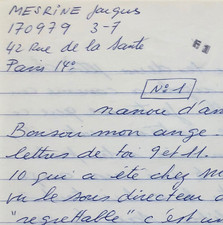 MESRINE Jacques
170979 3-7
42 Rue de la Santé
Paris 14e
E1
N° 1
nanou d'am
Bonsoir mon ange
lettres de toi 9 et 11.
10 qui a été chez M
vu le sous directeur d
"regrettable" c'est un